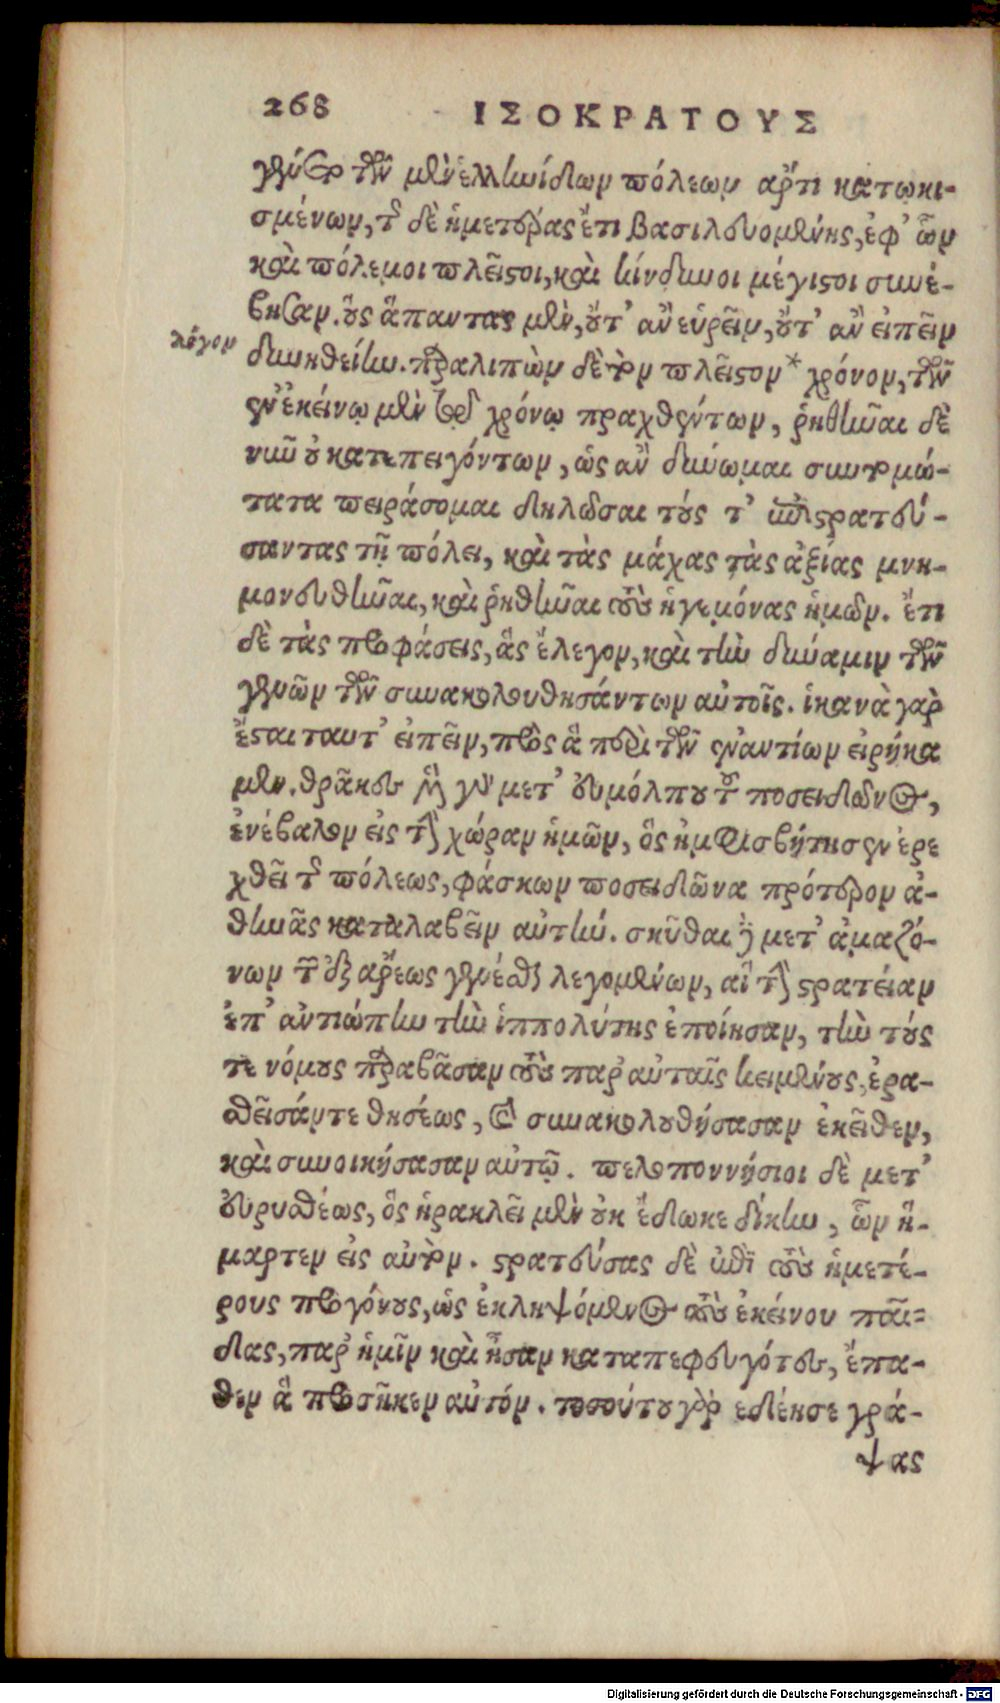 268 ΙΣΟΚΡΑΤΟΥΣ
γένει τῶν μὲν ἑλληνίδων πόλεων ἄρτι κατῳκι-
σμένων, τῆς δὲ ἡμετέρας ἔτι βασιλευομένης, ἐφ' ὧν
καὶ πόλεμοι πλεῖστοι, καὶ κίνδυνοι μέγιστοι συνέ-
βησαν. οὓς ἅπαντας μὲν, οὔτ' ἂν εὑρεῖν, οὔτ' ἂν εἰπεῖν
λόγον
δυνηθείην. παραλιπὼν δὲ τὸν πλεῖστον * χρόνον, τῶν
ἐν ἐκείνῳ μὲν τῷ χρόνῳ πραχθέντων, ῥηθῆναι δὲ
νῦν οὐ κατεπειγόντων, ὡς ἂν δύνωμαι συντομώ-
τατα πειράσομαι δηλῶσαι τούς τ' ἐπιστρατεύ-
σαντας τῇ πόλει, καὶ τὰς μάχας τὰς ἀξίας μνη-
μονευθῆναι, καὶ ῥηθῆναι τοὺς ἡγεμόνας ἡμῶν. ἔτι
δὲ τὰς προφάσεις, ἃς ἔλεγον, καὶ τὴν δύναμιν τῶν
γενῶν τῶν συνακολουθησάντων αὐτοῖς. ἱκανὰ γὰρ
ἔσται ταυτ' εἰπεῖν, πρὸς ἃ περὶ τῶν ἐναντίων εἰρήκα
μεν. θρᾷκες μὲν γὰρ μετ' εὐμόλπου τοῦ ποσειδῶνος,
ἐνέβαλον εἰς τὴν χώραν ἡμῶν, ὃς ἠμφισβήτησεν ἐρε
χθεῖ τῆς πόλεως, φάσκων ποσειδῶνα πρότερον ἀ-
θηνᾶς καταλαβεῖν αὐτήν. σκῦθαι δὲ μετ' ἀμαζό-
νων τῶν ἐξ ἄρεως γενέσθαι λεγομένων, αἳ τὴν στρατείαν
ἐπ' ἀντιόπην τὴν ἱππολύτης ἐποίησαν, τὴν τούς
τε νόμους παραβᾶσαν τοὺς παρ' αὐταῖς κειμένους, ἐρα-
σθεῖσάν τε θησέως, καὶ συνακολουθήσασαν ἐκεῖθεν,
καὶ συνοικήσασαν αὐτῷ. πελοποννήσιοι δὲ μετ'
εὐρυσθέως, ὃς ἡρακλεῖ μὲν οὐκ ἔδωκε δίκην, ὧν ἥ-
μαρτεν εἰς αὐτόν. στρατεύσας δὲ ἐπὶ τοὺς ἡμετέ-
ρους προγόνους, ὡς ἐκληψόμενος τοὺς ἐκείνου παῖ-
δας, παρ' ἡμῖν καὶ ἦσαν καταπεφευγότες, ἔπα-
θεν ἃ προσῆκεν αὐτόν. τοσούτου γὰρ ἐδέησε γρά-
ψας
Digitalisierung gefördert durch die Deutsche Forschungsgemeinschaft - DFG